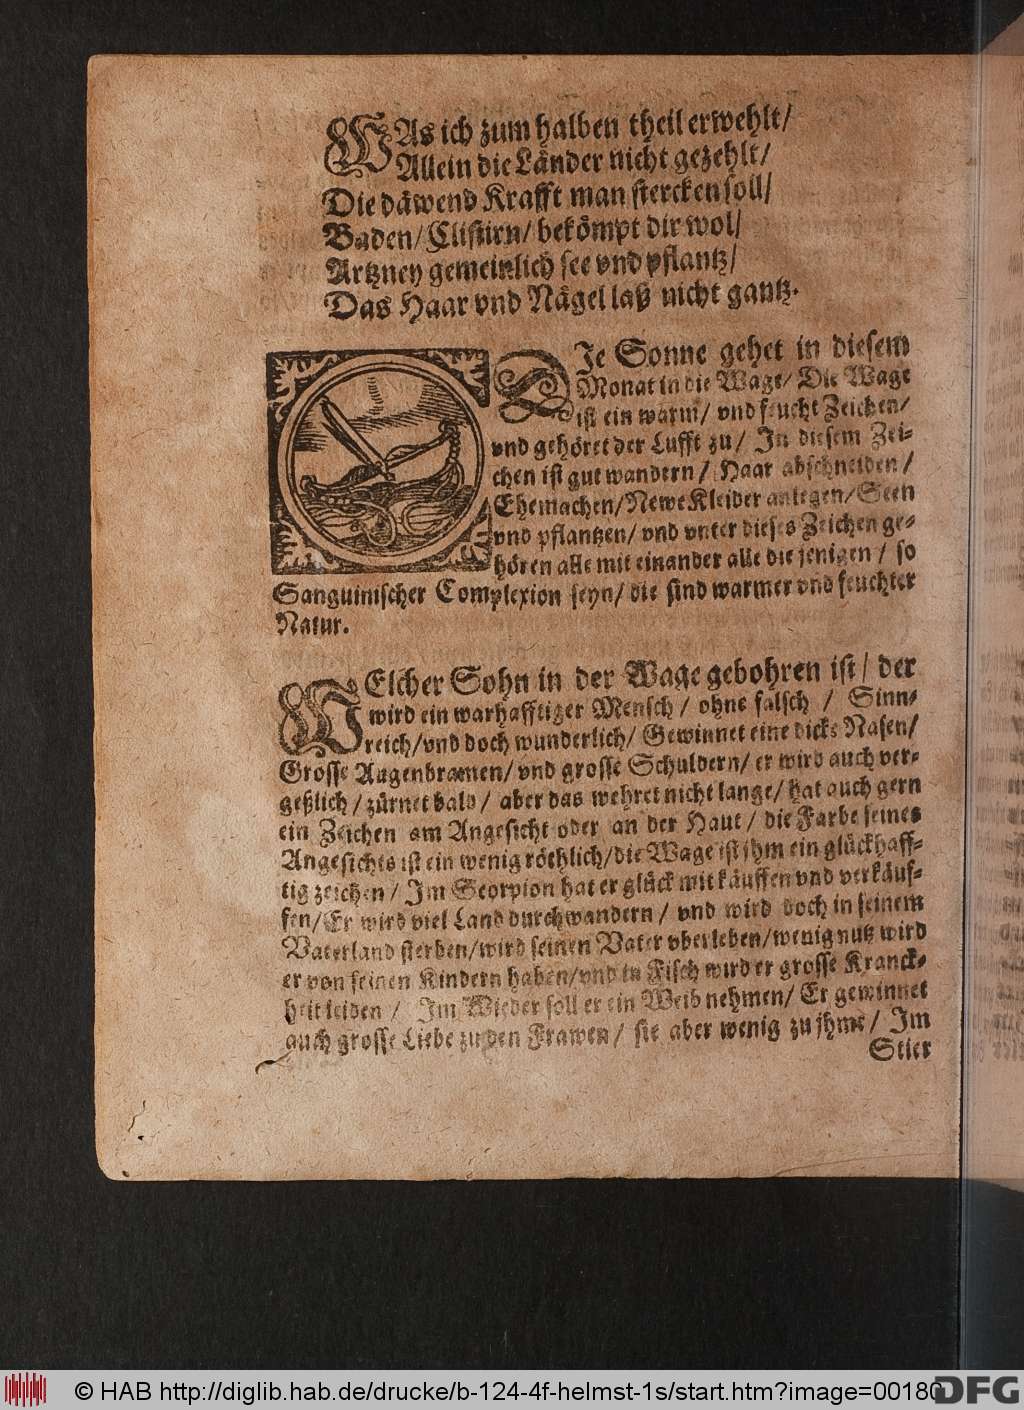 WAs ich zum halben theil erwehlt/
Allein die Länder nicht gezehlt/
Die däwend Krafft man stercken soll/
Baden/ Clistirn/ bekömpt dir wol/
Artzney gemeinlich see vnd pflantz/
Das Haar vnd Nägel laß nicht gantz.
DIe Sonne gehet in diesem
Monat in die Wage/ Die Wage
ist ein warm/ vnd feucht Zeichen/
vnd gehöret der Lufft zu/ In diesem Zei-
chen ist gut wandern/ Haar abschneiden/
Ehemachen/ Newe Kleider anlegen/ Seen
vnd pflantzen/ vnd vnter dieses Zeichen ge-
hören alle mit einander alle die jenigen/ so
Sanguinischer Complexion seyn/ die sind warmer vnd feuchter
Natur.
WElcher Sohn in der Wage gebohren ist/ der
wird ein warhafftiger Mensch/ ohne falsch/ Sinn-
reich/ vnd doch wunderlich/ Gewinnet eine dicke Nasen/
Grosse Augenbrawen/ vnd grosse Schuldern/ er wird auch ver-
geßlich/ zürnet bald/ aber das wehret nicht lange/ hat auch gern
ein Zeichen am Angesicht oder an der Haut/ die Farbe seines
Angesichts ist ein wenig röthlich/ die Wage ist jhm ein glückhaff-
tig zeichen/ Im Scorpion hat er glück mit käuffen vnd verkäuf-
fen/ Er wird viel Land durchwandern/ vnd wird doch in seinem
Vaterland sterben/ wird seinen Vater vberleben/ wenig nutz wird
er von seinen Kindern haben/ vnd in Fisch wird er grosse Kranck-
heit leiden/ Im Wieder soll er ein Weib nehmen/ Er gewinnet
auch grosse Liebe zu den Frawen/ sie aber wenig zu jhme/ Im
Stier
© HAB http://diglib.hab.de/drucke/b-124-4f-helmst-1s/start.htm?image=00180
DFG